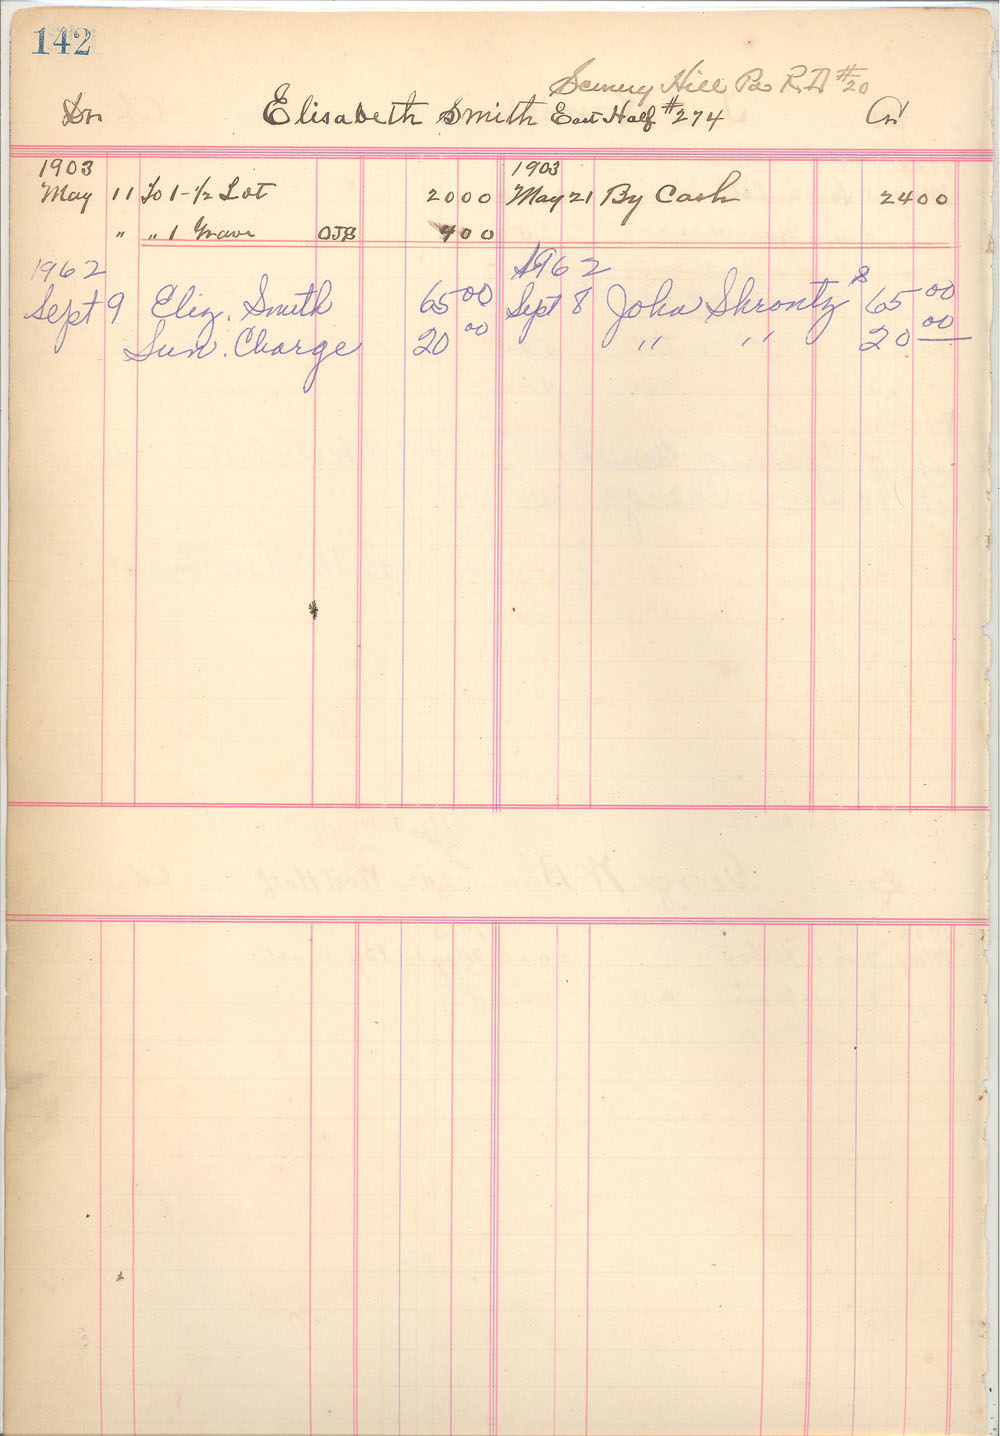 142
Scenery Hill Pa R.D #20
Dr. Elisabeth Smith East Half #274 Cr.
1903 1903
May 11 To 1-1/2 Lot 2000 May 21 By Cash 2400
" " 1 Grave OJB 400
1962 1962
Sept 9 Eliz. Smith 65 00 Sept 8 John Shrontz 65 00
Sun. Charge 20 00 " " 20 00